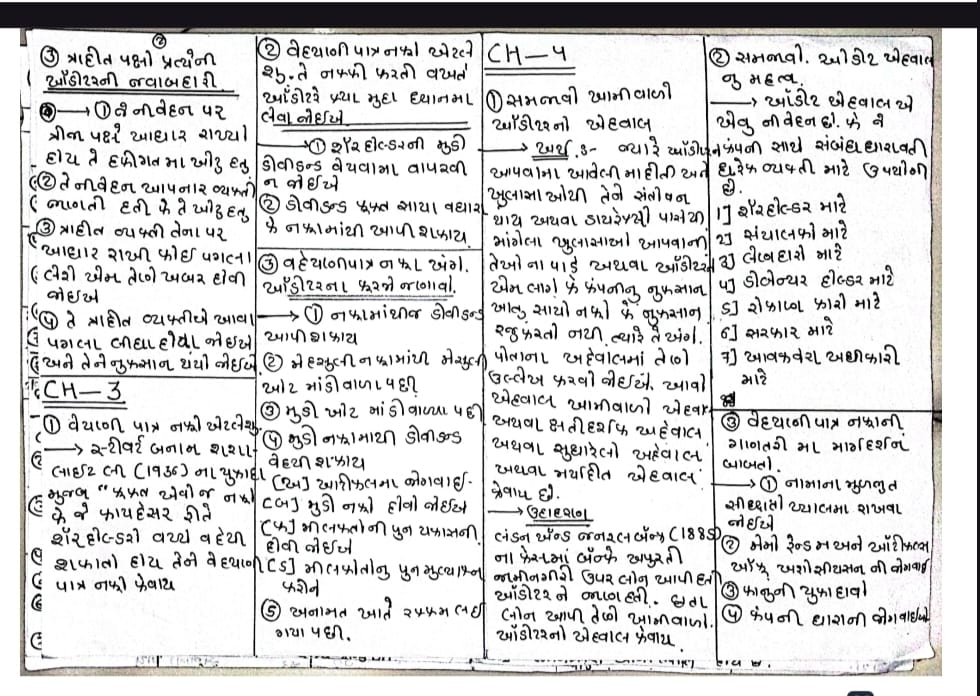 ②
③ ત્રાહીત પક્ષો પ્રત્યેની
ઑડીટરની જવાબદારી
→ ① જે નીવેદન પર
ત્રીજા પક્ષે આધાર રાખ્યો
હોય તે હકીગત મા ખોટુ હતુ
② તે નીવેદન આપનાર વ્યક્તી
જાણતી હતી કે તે ખોટુ હતુ
③ ત્રાહીત વ્યક્તી તેના પર
આધાર રાખી કોઈ પગલા
લેશે એમ તેણે ખબર હોવી
જોઇએ
④ તે ત્રાહીત વ્યક્તીએ આવા
પગલા લીધા હોવા જોઇએ
અને તેને નુકસાન થયો જોઇએ
CH-3
① વેચાણી પાત્ર નફો એટલે શુ
→ સ્ટીવર્ટ બનામ શાશા
લાઇટ લી (1936) ના ચુકાદા
મુજબ "ફક્ત એવો જ નફો
કે જે ફાયદેસર રીતે
શૅરહોલ્ડરો વચ્ચે વહેચી
શકાતો હોય તેને વેહચાણ
પાત્ર નફો કેવાય
② વેહચાણી પાત્ર નફો એટલે
શુ. તે નક્કી કરતી વખતે
ઑડીટરે ક્યા મુદા ધ્યાનમા
લેવા જોઇએ
→ ① શૅરહોલ્ડરની મુડી
ડીવીડન્ડ વેચવામા વાપરવી
ન જોઇએ
② ડીવીડન્ડ ફક્ત સાચા વધારા
કે નફામાંથી આપી શકાય
③ વહેચાણીપાત્ર નફા અંગે
ઑડીટરના ફરજો જણાવો.
→ ① નફામાંથીજ ડીવીડન્ડ
આપી શકાય
② મેહસુલી નફામાંથી મેસુલી
ખોટ માંડી વાળા પછી
③ મુડી ખોટ માંડી વાળ્યા પછી
④ મુડી નફામાથી ડીવીડન્ડ
વેહચી શકાય
[અ] આર્ટીકલમા જોગવાઇ-
[બ] મુડી નફો હોવો જોઇએ
[ક] મીલકતોની પુન ચકાસની
હોવી જોઇએ
[ડ] મીલકોતોનુ પુન મુલ્યાંકન
કરીને
⑤ અનામત ખાતે રકકમ લઇ
ગયા પછી.
CH-4
① સમજાવો ખામીવાળો
ઑડીટરનો એહવાલ
→ અર્થ :- જ્યારે ઑડીટરને
આપવામા આવેલી માહીતી અને
ખુલાસા ઓથી તેને સંતોષ ન
થાય અથવા ડાયરેક્ટરો પાસેથી
માંગેલા ખુલાસાઓ આપવાની
તેઓ ના પાડે અથવા ઑડીટરને
એમ લાગે કે કંપનીનુ નુકસાન
ખાતુ સાચો નફો કે નુકસાન
રજુ કરતો નથી ત્યારે તે અંગે.
પોતાના અહેવાલમાં તેણે
ઉલ્લેખ કરવો જોઇએ. આવો
એહવાલ ખામીવાળો એહવાલ
અથવા ક્ષતીદર્શક અહેવાલ
અથવા સુધારેલો અહેવાલ
અથવા મર્યાદીત એહવાલ
કેવાય છે.
→ ઉદાહરણ
લંડન ઍન્ડ જનરલ બૅન્ક (1885)
ના કેસમાં બૅન્કે અપુરતી
જામીનગીરી ઉપર લોન આપી હતી
ઑડીટર ને જાણ હતી. છતા
લોન આપી તેણે ખામીવાળો.
ઑડીટરનો એહવાલ કેવાય.
② સમજાવો. ઓડીટ એહવાલ
નુ મહત્વ.
→ ઑડીટ એહવાલ એ
એવુ નીવેદન છે. કે જે
કંપની સાથે સંબંધ ધારાવતી
દરેક વ્યક્તી માટે ઉપયોગી
છે.
1] શૅરહોલ્ડર માટે
2] સંચાલકો માટે
3] લેણદારો માટે
4] ડીબેન્ચર હોલ્ડર માટે
5] રોકાણ કારો માટે
6] સરકાર માટે
7] આવકવેરા અધીકારી
માટે
③ વેહચાણી પાત્ર નફાની
ગાણતરી મા માર્ગદર્શન
બાબતો.
→ ① નામાના મુળભુત
સીદ્ધાંતો ધ્યાલમા રાખવા
જોઇએ
② મેમો રેન્ડમ અને ઑર્ટીકલ્સ
ઑફ અશોસીયસન ની જોગવાઇ
③ કાનુની ચુકાદાવો
④ કંપની ધારાની જોગવાઇઓ